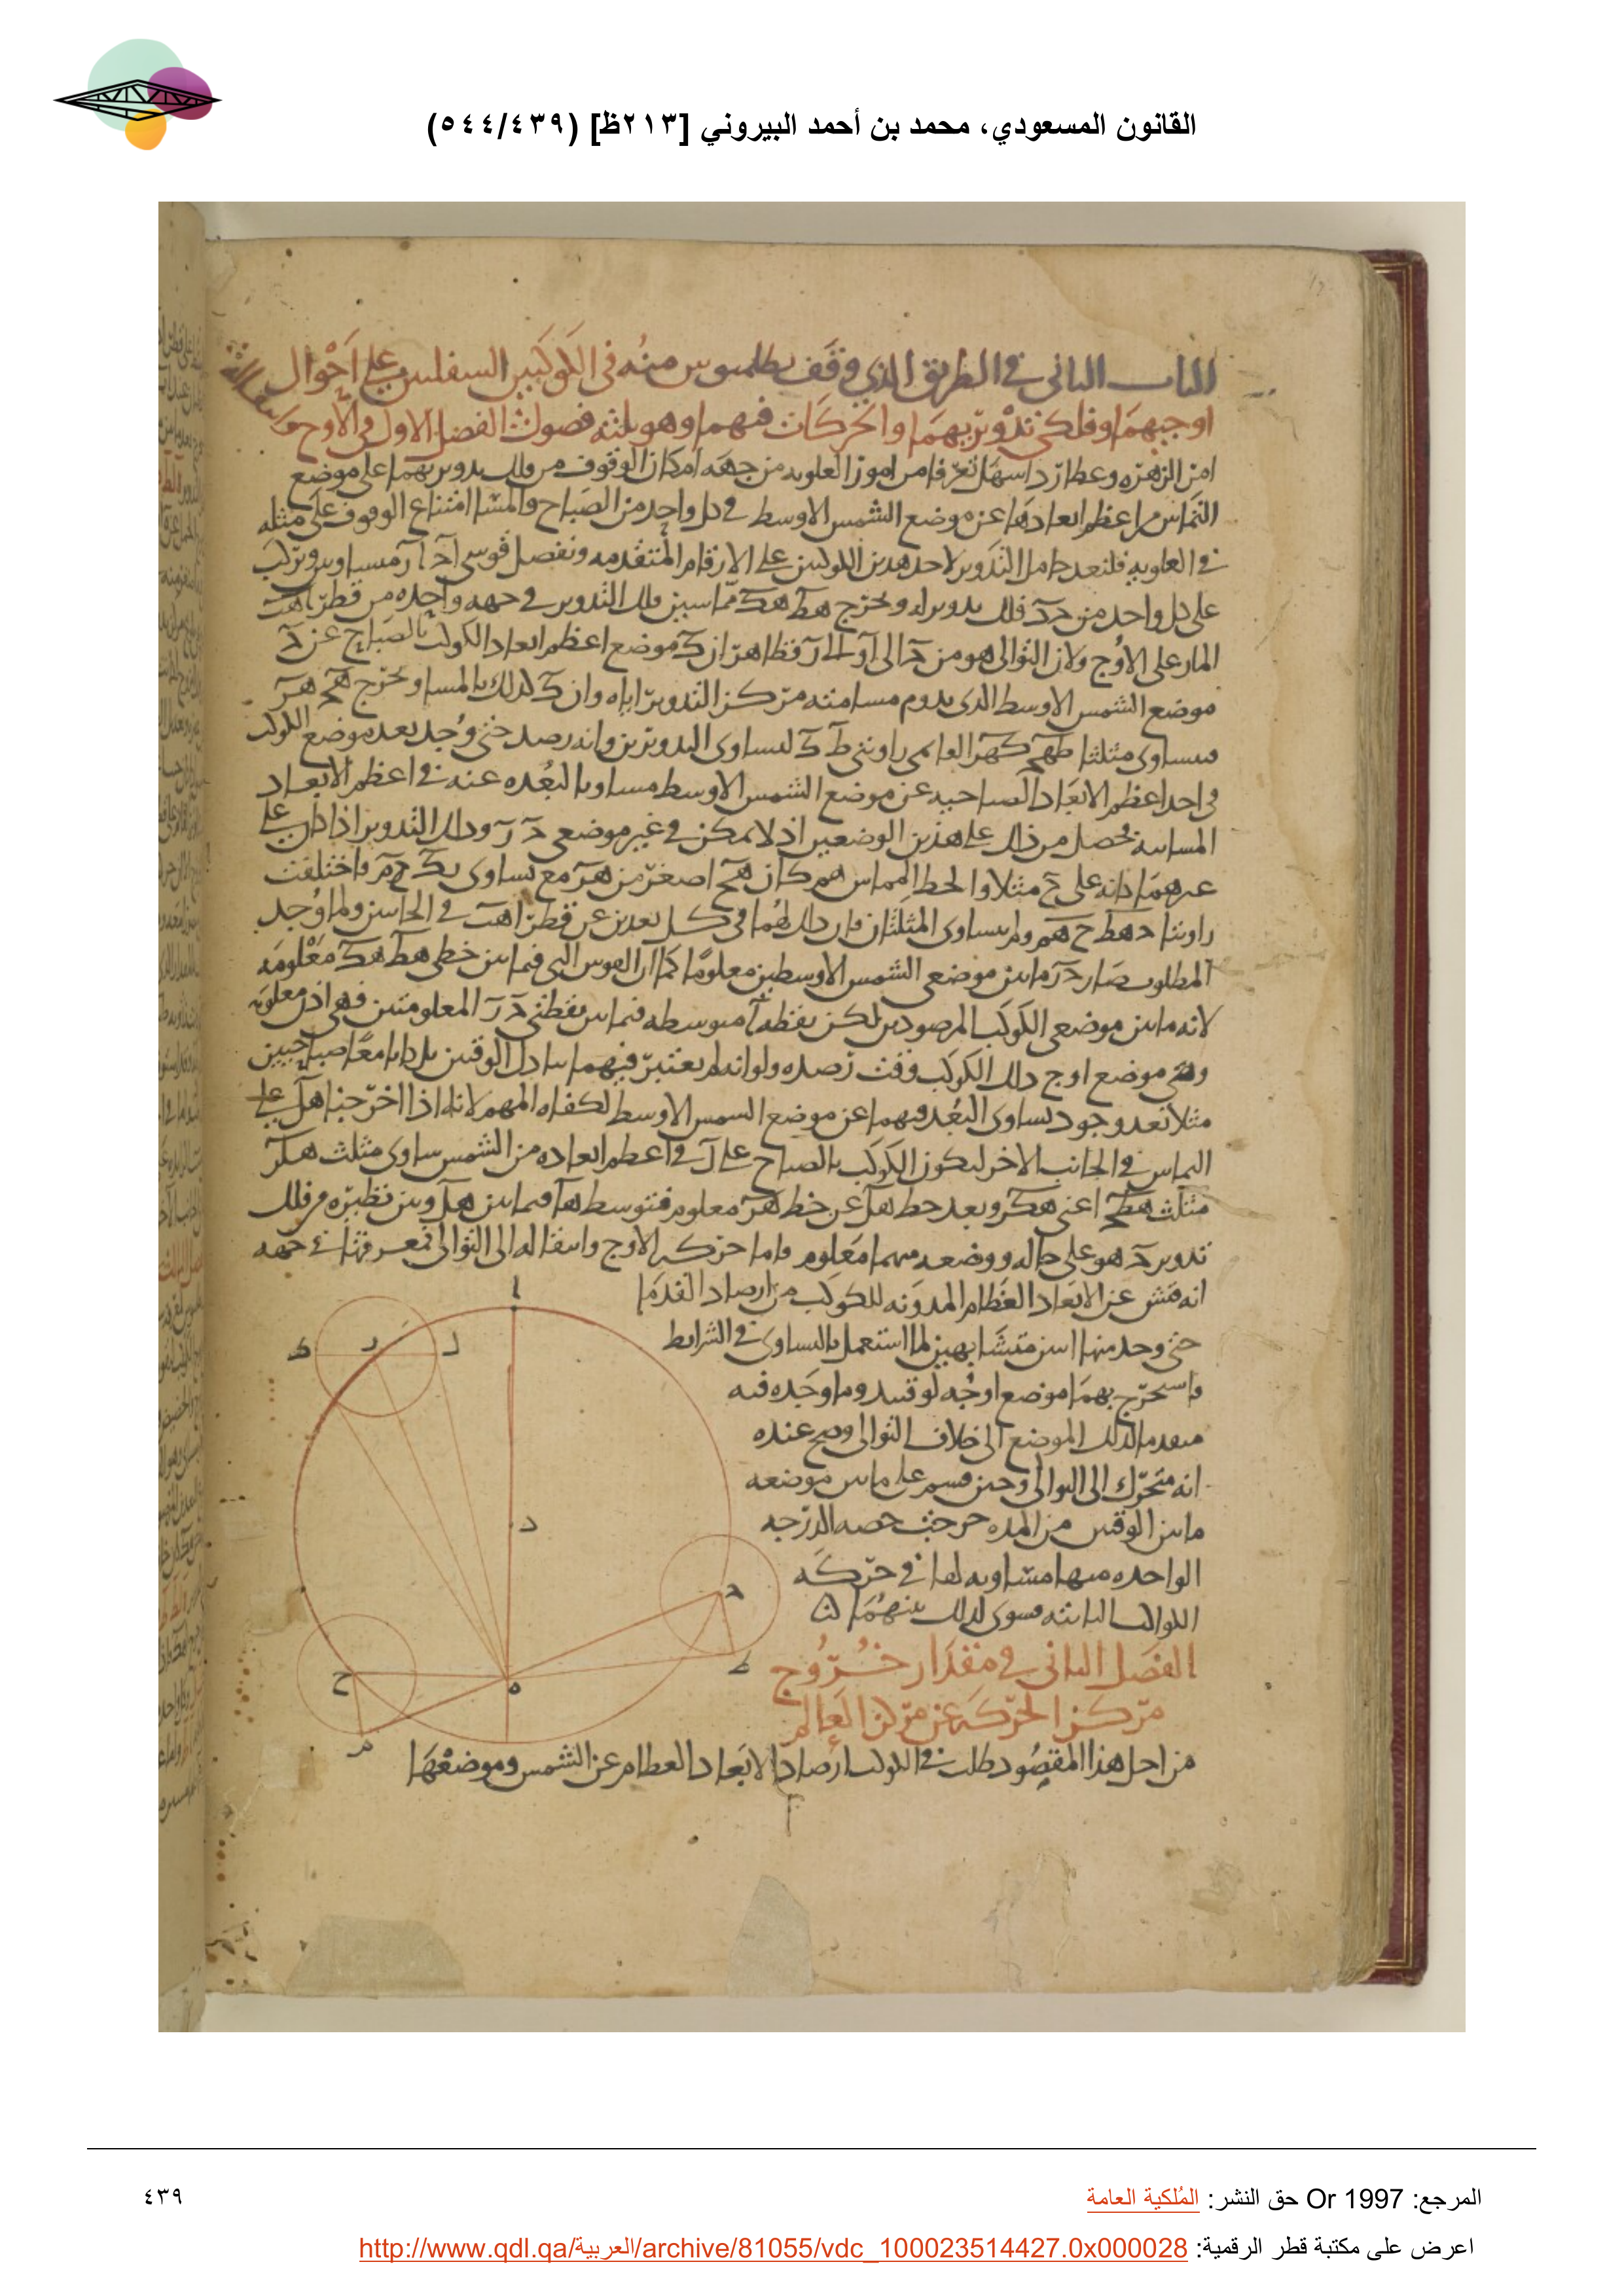 القانون المسعودي، محمد بن أحمد البيروني [٢١٣ظ] (٥٤٤/٤٣٩)
الباب الثاني في الطريق الذي وقف بطلميوس منه في الكوكبين السفليين على احوال
اوجيهما وفلكي تدويريهما والحركات فيهما وهو ثلثه فصول الفصل الاول في الاوج
امر الزهره وعطارد اسهل تعرفا من امور العلويه من جهه امكان الوقوف من فلك تدويريهما على موضع
التماس من اعظم ابعادهما عن موضع الشمس الاوسط في كل واحد من الصباح والمسا امتناع الوقوف على مثله
في العلويه فلنعد حامل التدوير لاحد هذين الكوكبين على الارقام المتقدمه ونفصل قوسي
على كل واحد من فلك تدويره ونخرج مماسين فلك التدوير في جهه واحده من قطر
المار على الاوج ولان التوالي هو من الى فظاهر ان موضع اعظم ابعاد الكوكب بالصباح عن
موضع الشمس الاوسط الذي يدوم مسامته مركز التدوير اياه وان كذلك بالمسا ونخرج
فيتساوى مثلثا لتساوي التدويرين وانه رصد حتى وجد بعد موضع الكوكب
في احد اعظم الابعاد الصباحيه عن موضع الشمس الاوسط مساويا لبعده عنه في اعظم الابعاد
المسائيه فحصل من ذلك على هذين الوضعين اذ لا يمكن في غير موضعي وذلك التدوير اذا كان على
غيرهما كانه على مثلا والخط المماس كان اصغر من مع تساوي فاختلفت
زاويتا ولم يتساوى المثلثان فان ذلك لهما في كل بعدين عن قطر في الجانبين ولما وجد
المطلوب صار ما بين موضعي الشمس الاوسطين معلوما كما ان القوس التي فيما بين خطي معلومه
لانه ما بين موضعي الكوكب المرصودين لكن نقطه متوسطه فيما بين نقطتي المعلومتين فهي اذن معلومه
وهي موضع اوج ذلك الكوكب وقت رصده ولو انه لم يعتبر فيهما تبادل الوقتين بل كانا معا صباحيين
مثلا بعد وجود تساوي البعد فيهما عن موضع الشمس الاوسط لكفاه المهم لانه اذا اخرجنا على
التماس في الجانب الاخر ليكون الكوكب بالصباح على في اعظم ابعاده من الشمس ساوى مثلث
مثلث اعني وبعد خط عن خط معلوم فتوسط فيما بين وبين نظيره من فلك
تدوير هو على حاله ووضعه منهما معلوم واما حركه الاوج وانتقاله الى التوالي فمعرفتها في جهه
انه فتش عن الابعاد العظام المدونه للكوكب من ارصاد القدما
حتى وجد منها اثنين متشابهين لما استعمل بالتساوي في الشرايط
فاستخرج بهما موضع اوجه لوقتيه وما وجده فيه
متقدما لذلك الموضع الى خلاف التوالي وصح عنده
انه متحرك الى التوالي وحين قسم على ما بين موضعه
ما بين الوقتين من المده خرجت حصه الدرجه
الواحده منها مساويه لها في حركه
الكواكب الثابته فسوى لذلك بينهما
الفصل الثاني في مقدار خروج
مركز الحركه عن مركز العالم
من اجل هذا المقصود طلب في الكوكب ارصاد الابعاد العظام عن الشمس وموضعها
ا
ك
ر
ل
د
ح
ط
ه
ح
م
المرجع: Or 1997 حق النشر: المُلكية العامة
٤٣٩
اعرض على مكتبة قطر الرقمية: http://www.qdl.qa/العربية/archive/81055/vdc_100023514427.0x000028